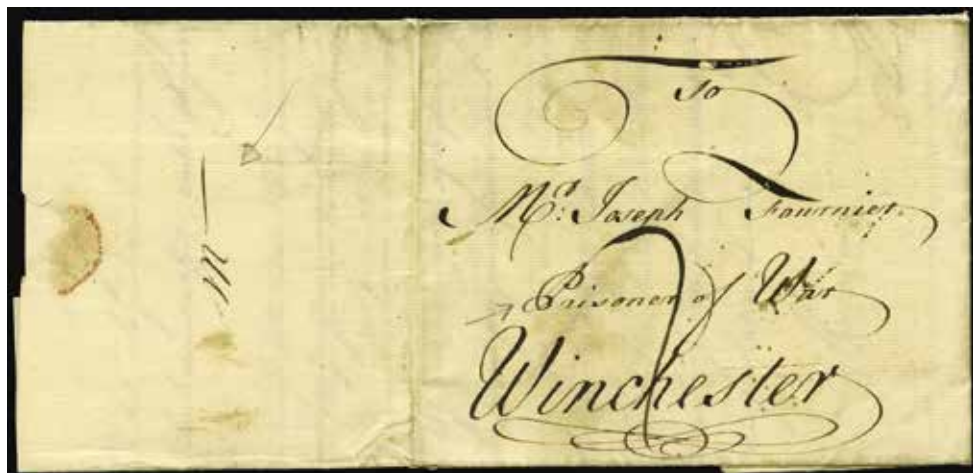 To
Mr: Joseph Fournier.
Prisoner of War
Winchester